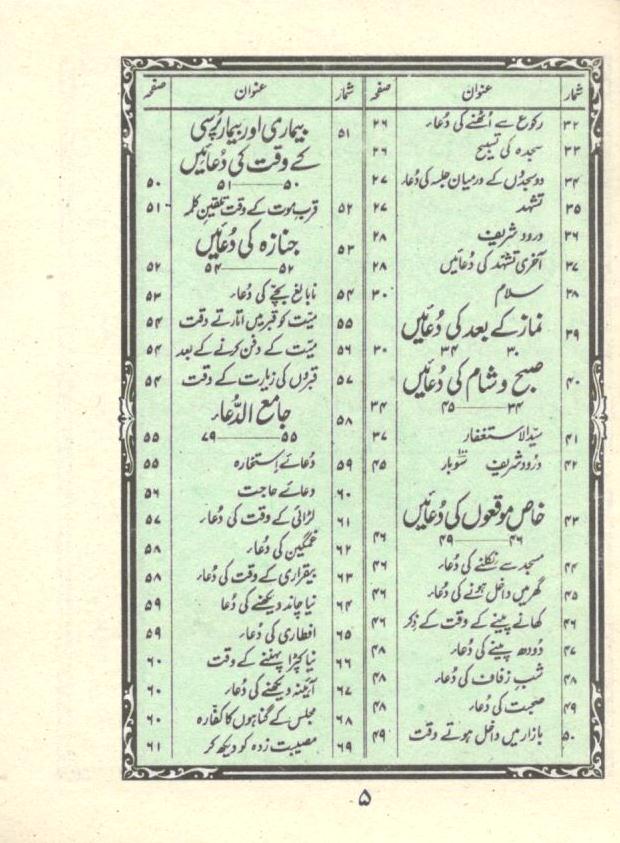 شمار عنوان صفحہ
۳۲ رکوع سے اُٹھنے کی دُعاء ۲۶
۳۳ سجدہ کی تسبیح ۲۶
۳۴ دو سجدوں کے درمیان جلسہ کی دُعاء ۲۷
۳۵ تشہد ۲۷
۳۶ درود شریف ۲۸
۳۷ آخری تشہد کی دُعائیں ۲۸
۳۸ سلام ۳۰
۳۹ نماز کے بعد کی دُعائیں
۳۰ ۳۴ ۳۰
۴۰ صبح و شام کی دُعائیں
۳۴ — ۴۵ ۳۴
۴۱ سیّدالاستغفار ۳۷
۴۲ درُود شریف سَوبار ۴۵
۴۳ خاص موقعوں کی دُعائیں
۴۶ — ۴۹ ۴۶
۴۴ مسجد سے نکلنے کی دُعاء ۴۶
۴۵ گھر میں داخل ہونے کی دُعاء ۴۶
۴۶ کھانے پینے کے وقت کے ذکر ۴۶
۴۷ دُودھ پینے کی دُعاء ۴۸
۴۸ شبِ زفاف کی دُعاء ۴۸
۴۹ صحبت کی دُعاء ۴۸
۵۰ بازار میں داخل ہوتے وقت ۴۹
شمار عنوان صفحہ
۵۱ بیماری اور بیمار پُرسی
کے وقت کی دُعائیں
۵۰ — ۵۱ ۵۰
۵۲ قربِ موت کے وقت تلقینِ کلمہ ۵۱
۵۳ جنازہ کی دُعائیں
۵۲ — ۵۴ ۵۲
۵۴ نابالغ بچّے کی دُعاء ۵۳
۵۵ میّت کو قبر میں اتارتے وقت ۵۴
۵۶ میّت کے دفن کرنے کے بعد ۵۴
۵۷ قبروں کی زیارت کے وقت ۵۴
۵۸ جامع الدُّعاء
۵۵ — ۷۹ ۵۵
۵۹ دُعائے اِستخارہ ۵۵
۶۰ دعائے حاجت ۵۶
۶۱ لڑائی کے وقت کی دُعاء ۵۷
۶۲ غمگین کی دُعاء ۵۸
۶۳ بیقراری کے وقت کی دُعاء ۵۸
۶۴ نیا چاند دیکھنے کی دُعا ۵۹
۶۵ افطاری کی دُعاء ۵۹
۶۶ نیا کپڑا پہننے کے وقت ۶۰
۶۷ آئینہ دیکھنے کی دُعاء ۶۰
۶۸ مجلس کے گناہوں کا کفّارہ ۶۰
۶۹ مصیبت زدہ کو دیکھ کر ۶۱
۵